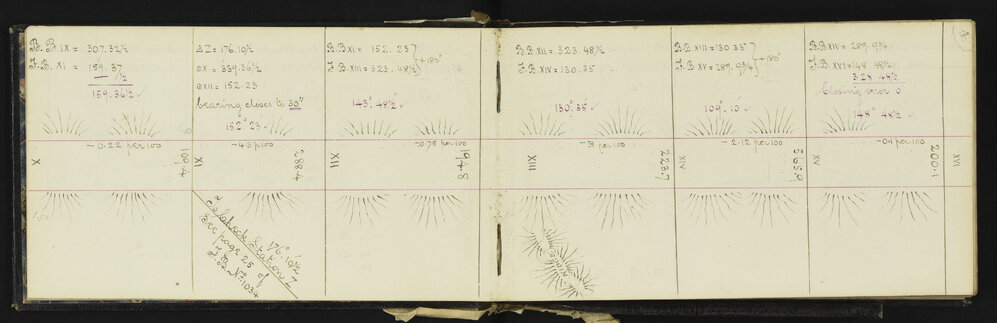 B.B IX = 307.32½
F.B. XI = 159.37
½
159.36½
- 0.22 per 100
109.4
X
ΔZ = 176.10½
ΘX = 339.36½
ΘXII = 152.23
bearing closes to 30"
152° 23
-4.3 p 100
288.4
XI
To check Station Z
176° 10½
See page 25 of
F.B No 1034
B.B XI = 152.23
F.B. XII = 323.48½
+180°
143° 48½
-0.75 per 100
194.8
XII
B.B XII = 323.48½
F.B XIV = 130.35
130° 35
-31 per 100
223.7
XIII
B.B XIII = 130.35
F.B XV = 289.9¾
+180°
109° 10
-2.12 per 100
565.9
XIV
B.B XIV = 289.9¾
F.B. XVI = 148.48½
328 48½
Closing error 0
148° 48½
-0.1 per 100
200.1
XV
XVI